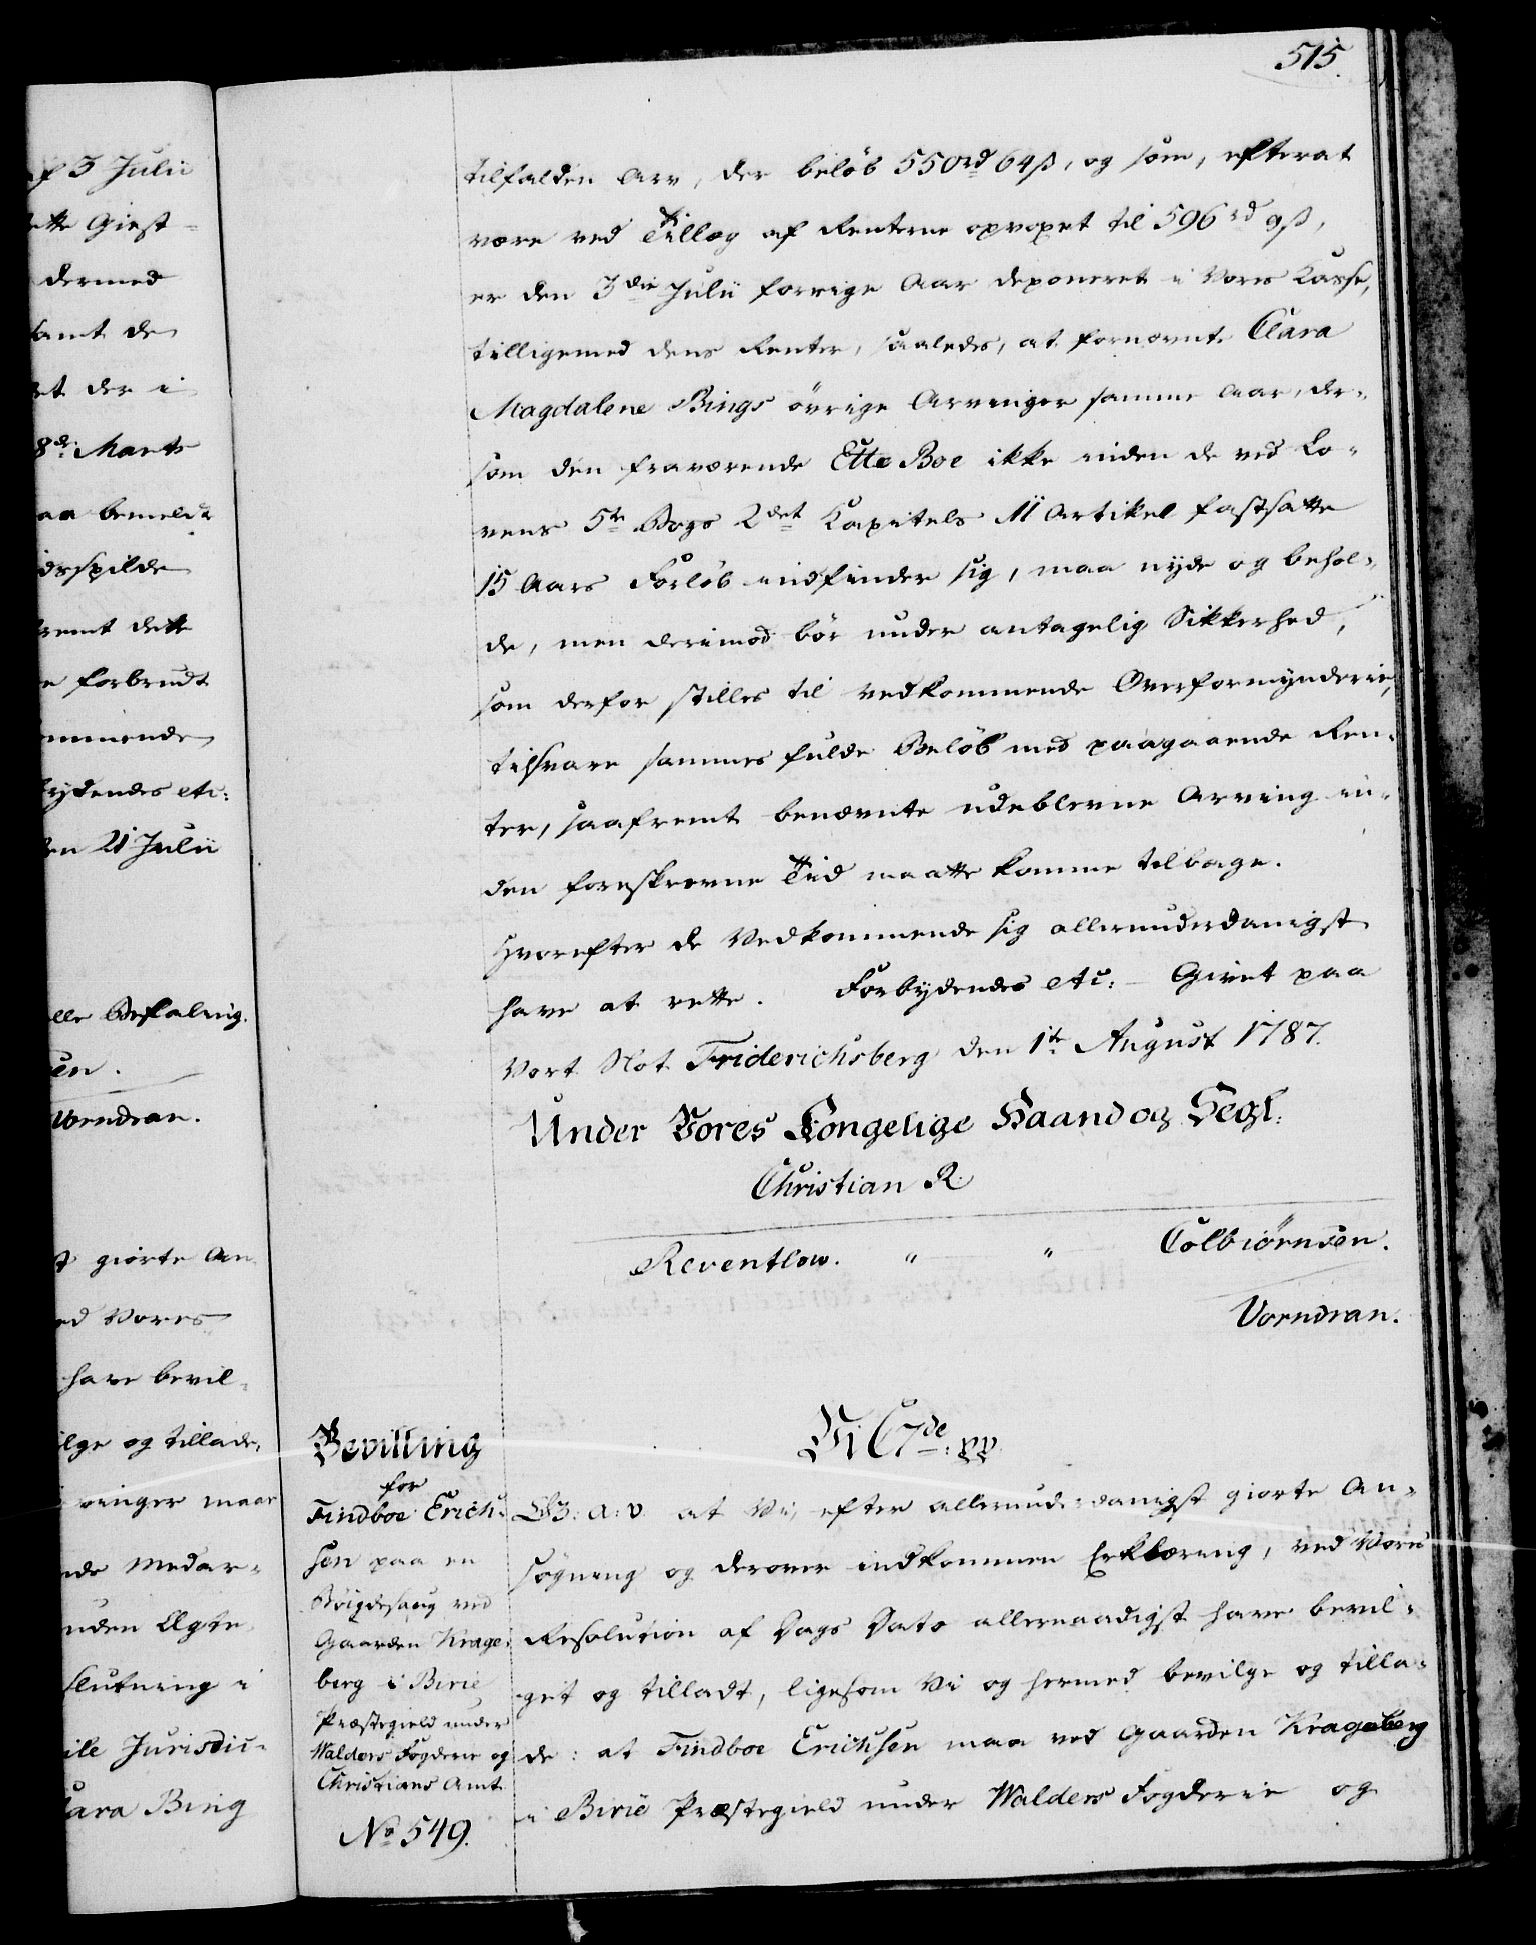 515.
af 3 Julii
ette Giest-
dermed
samt de
et der i
8de Marts
aa bemeldt
idsspilde
fremt dette
e forbrudt
ommende
bydendes etc:
den 21 Julii
lle Befaling.
sen.
Vorndran.
st giorte An
ed Vores
have bevil-
ilge og tillade,
vinger maae
nde Medar-
uden Ægte
slutning i
ile Jurisdic-
lara Bing
tilfalden Arv, der beløb 550rd 64ß, og som, efterat
være ved Tillæg af Renterne opvoxet til 596rd 9ß,
er den 3die Julii forrige Aar deponeret i Vores Kasse,
tilligemed dens Renter, saaledes, at fornævnte Clara
Magdalene Bings øvrige Arvinger samme Aar, der-
som den fraværende Ette Boe ikke inden de ved Lo-
vens 5te Bogs 2det Kapitels 11 Artikel fastsatte
15 Aars Forløb indfinder sig, maa nyde og behol-
de, men derimod bør under antagelig Sikkerhed,
som derfor stilles til vedkommende Overformynderie,
tilsvare sammes fulde Beløb med paagaaende Ren-
ter, saafremt benævnte udeblevne Arving in-
den foreskrevne Tid maatte komme tilbage.
Hvorefter de Vedkommende sig allerunderdanigst
have at rette. Forbydendes etc: - Givet paa
Vort Slot Friderichsberg den 1te August 1787.
Under Vores Kongelige Haand og Segl.
Christian R.
Reventlow. " " Colbiørnsen.
Vorndran.
Bevilling
for
Findboe Erich-
sen paa en
Bøigdesaug ved
Gaarden Krage-
berg i Birie
Præstegield under
Walders Fogderie og
Christians Amt
No 549.
Vi C7de: pp
G: a: v. at Vi, efter allerunderdanigst giorte An-
søgning og derover indkommen Erklæring, ved Vores
Resolution af Dags Dato allernaadigst have bevil-
get og tilladt, ligesom Vi og hermed bevilge og tilla-
de: at Findboe Erichsen maa ved Gaarden Krageberg
i Birie Præstegield under Walders Fogderie og